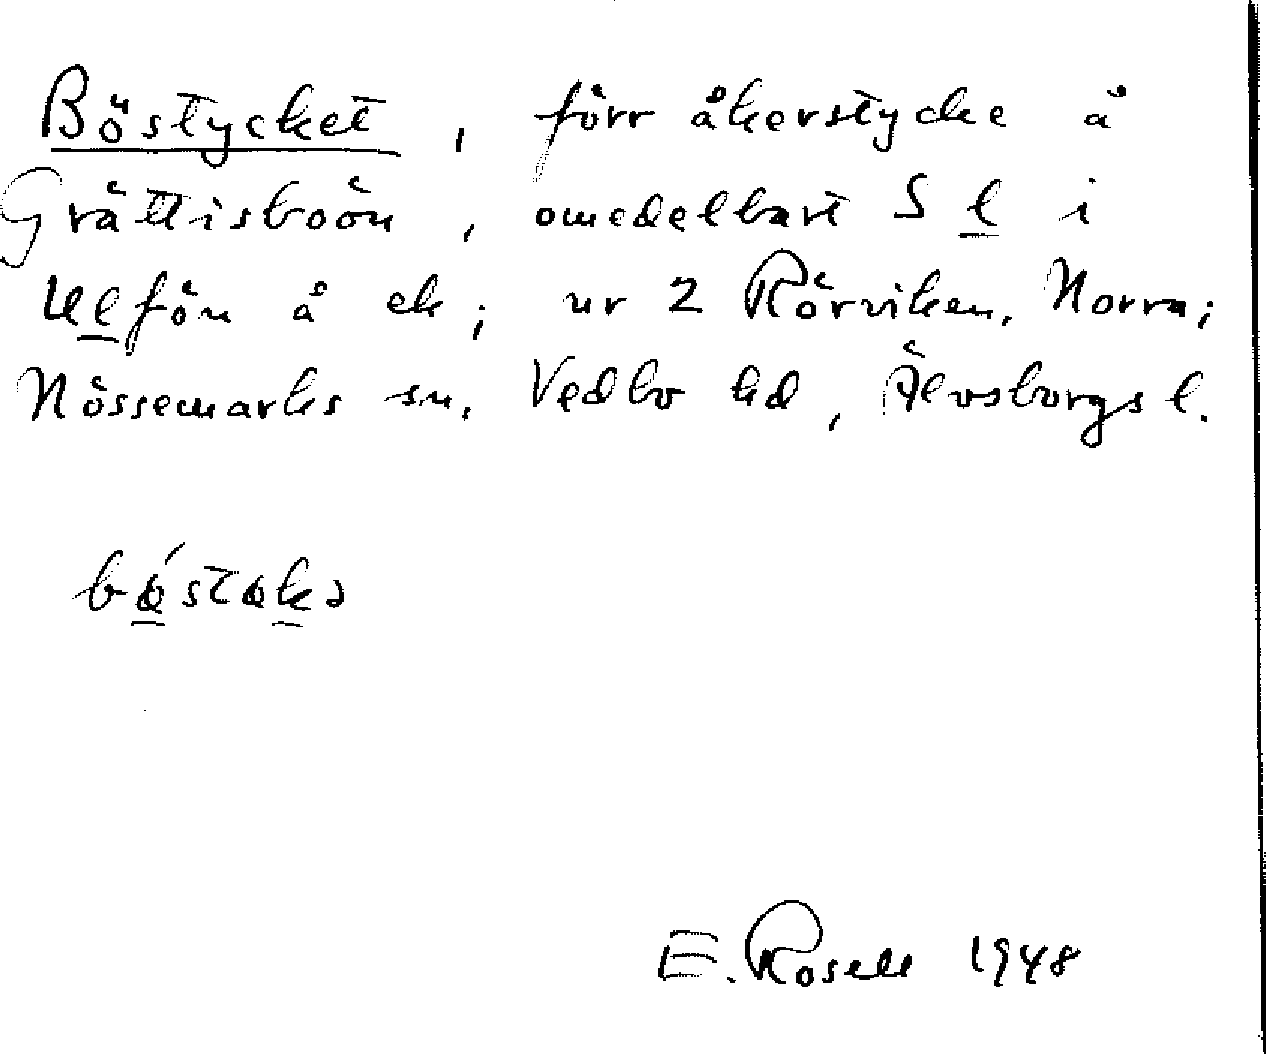 Böstycket, förr åkerstycke å
Grättisboön, omedelbart S l i
Ulfön å ek; nr 2 Rörviken, Norra;
Nössemarks sn, Vedbo hd, Älvsborgs l.
E. Rosell 1948